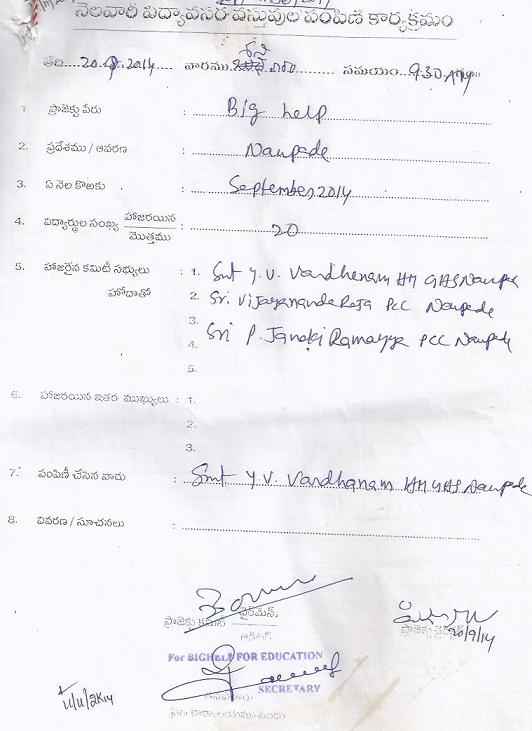 నెలవారీ విద్యావసర వస్తువుల పంపిణి కార్యక్రమం
తేది....20.9.2014.... వారము.శని........... సమయం...9.30.AM
1. ప్రాజెక్టు పేరు : Big help
2. ప్రదేశము / ఆవరణ : Naupada
3. ఏ నెల కొఱకు : September 2014
4. విద్యార్థుల సంఖ్య హాజరయిన / మొత్తము : 20
5. హాజరైన కమిటీ సభ్యులు : 1. Smt Y.V. Vardhanam HM GHS Naupada
హోదాతో 2. Sri. Vijayananda Raja PCC Naupada
3. Sri P. Janaki Ramayya PCC Naupada
4.
5.
6. హాజరయిన ఇతర ముఖ్యులు : 1.
2.
3.
7. పంపిణీ చేసిన వారు : Smt Y.V. Vardhanam HM GHS Naupada
8. వివరణ / సూచనలు :
ప్రాజెక్టు కమిటీ ఛైర్మన్
20/9/14
For BIGHELP FOR EDUCATION
SECRETARY